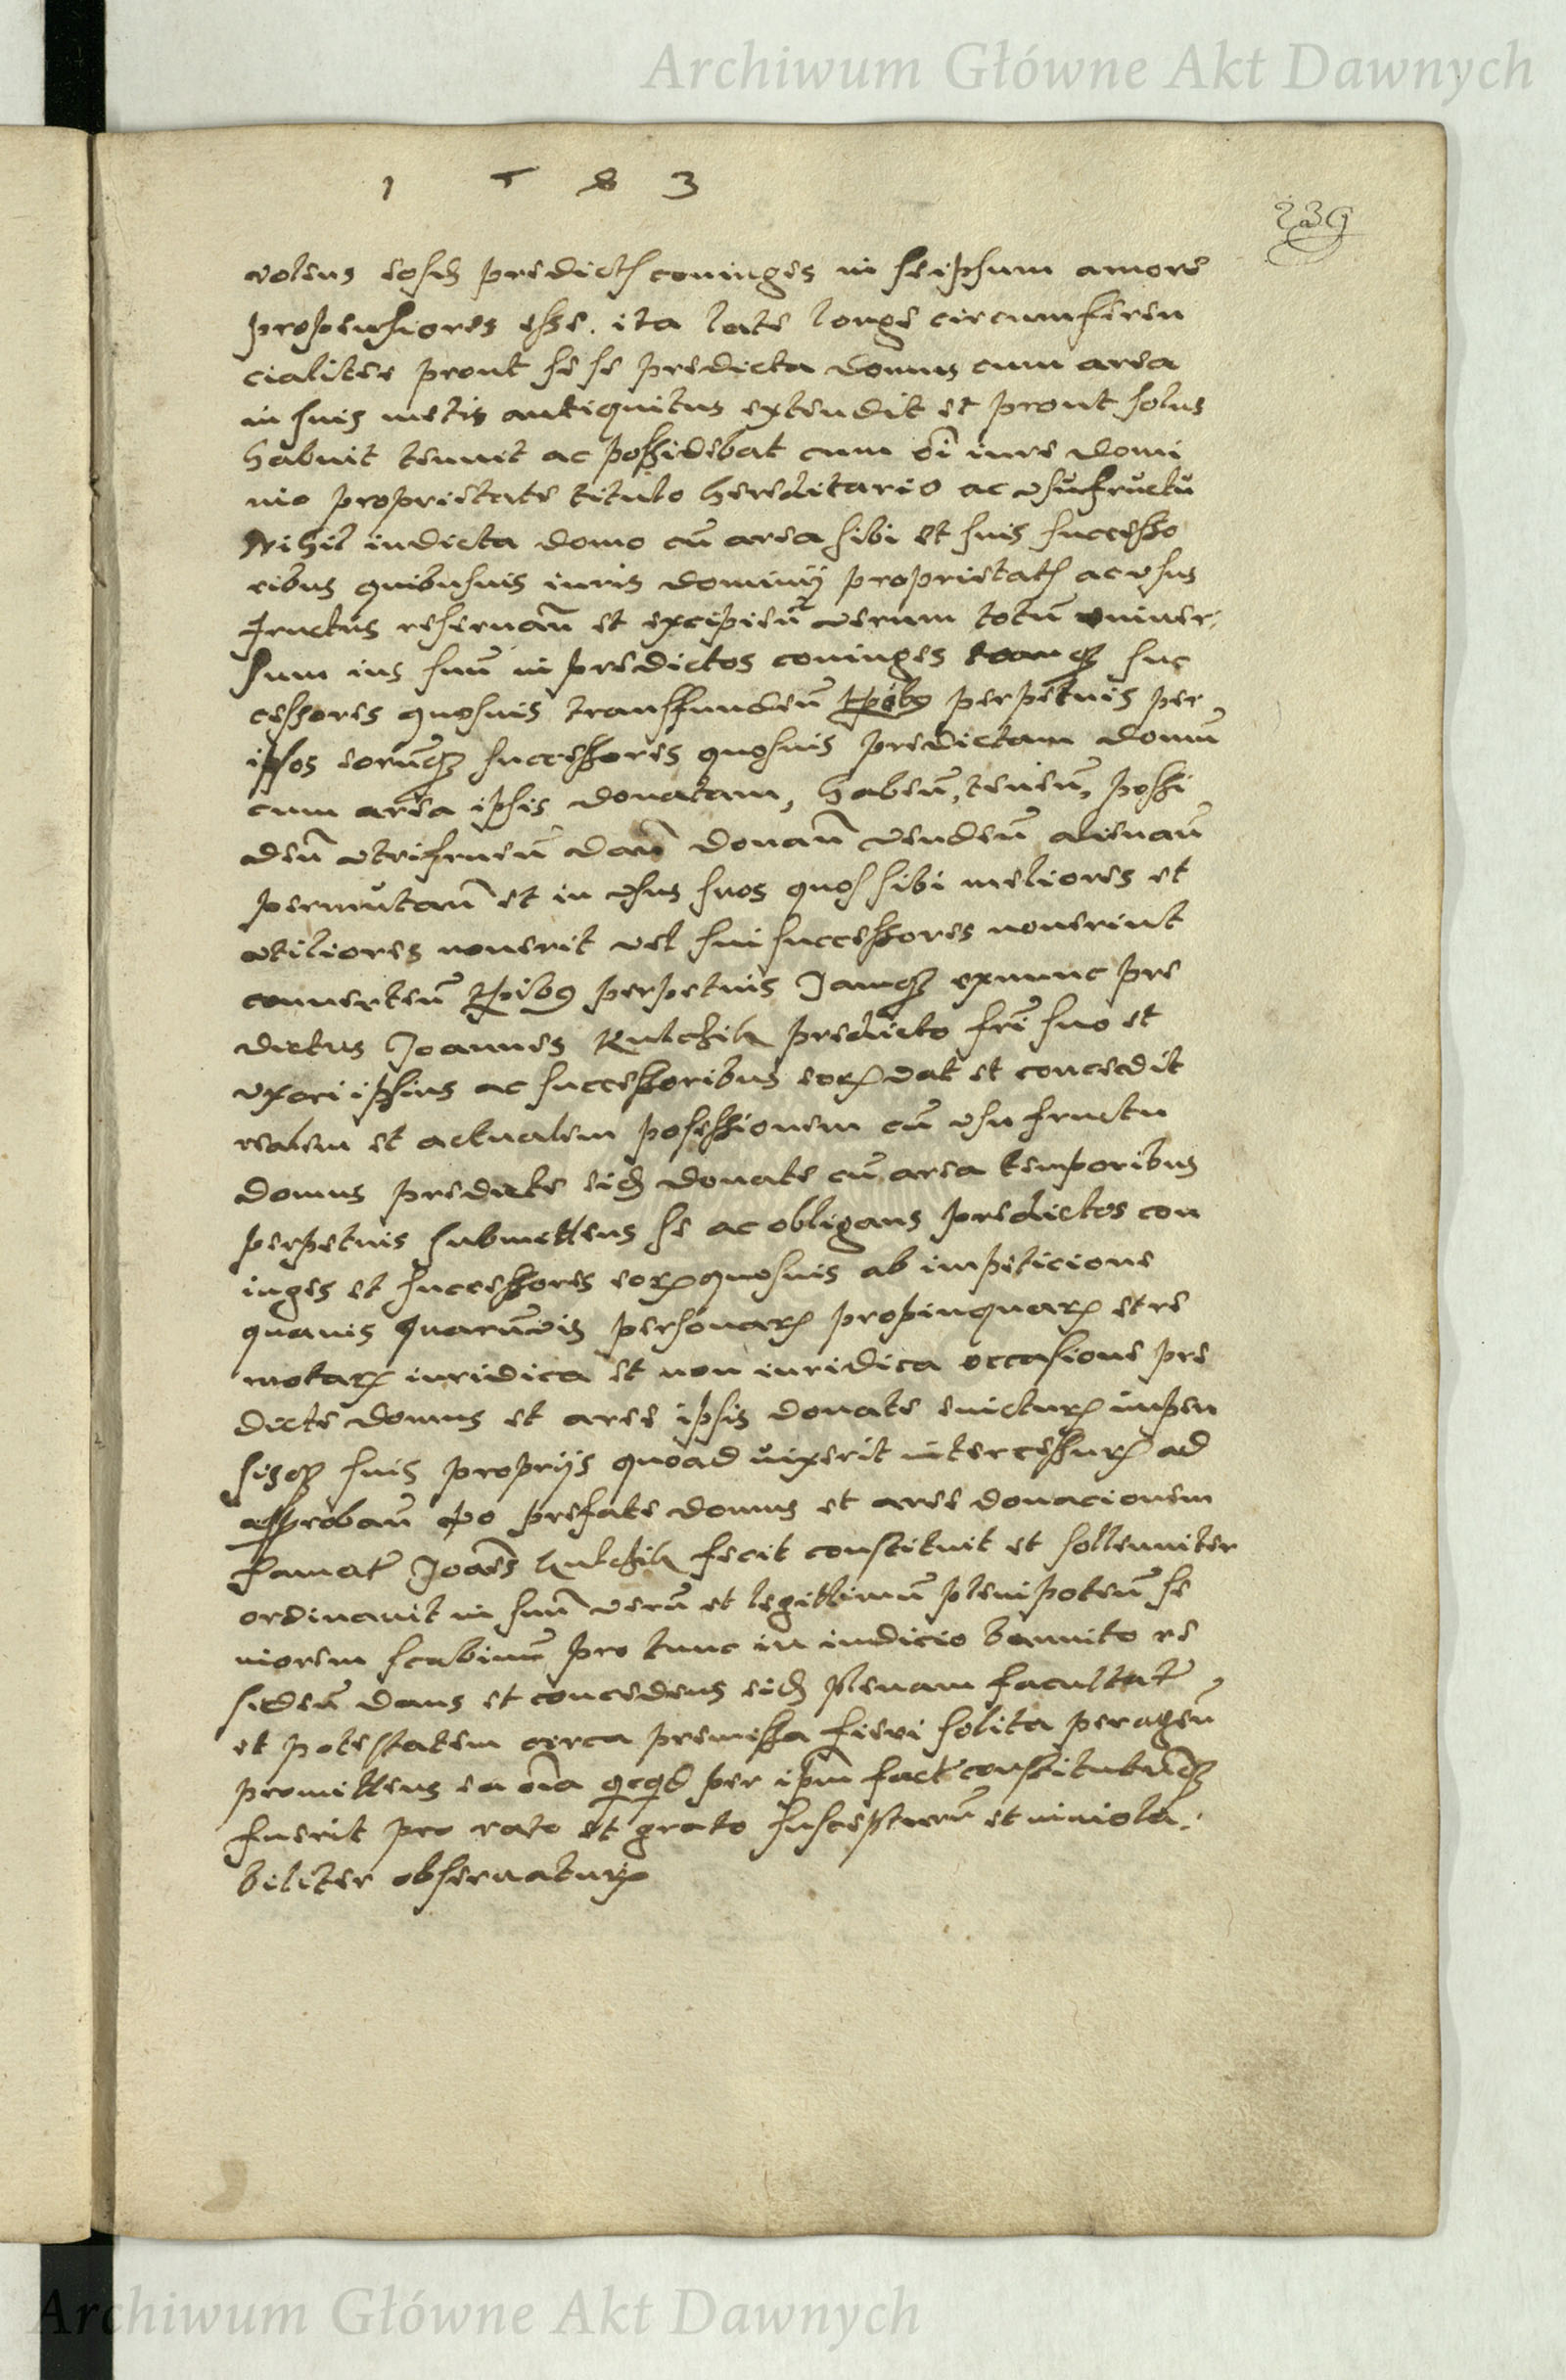 Archiwum Główne Akt Dawnych
1 5 8 3
239
volens eosd predict coniuges in seipsum amore
propensiores esse. ita late longe circumferen
cialiter prout se se predicta domus cum area
in suis metis antiquitus extendit et prout solus
habuit tenuit ac possidebat cum õi iure domi
nio proprietate titulo hereditario ac vsufructu
Nihil indicta domo cũ area sibi et suis successo
ribus quibusuis iuris dominij proprietat ac vsus
fructus reseruañ et excipieñ verum totũ vniuer,
sum ius suũ in predictos coniuges eorumq suc
cessores quosuis transfundeñ tpibꝰ perpetuis per
ipsos eorũq successores quosuis predictam domũ
cum area ipsis donatam, habeñ, teneñ, possi
deñ vtrifrueñ dañ donañ vendeñ alienañ
permutañ et in vsus suos quos sibi meliores et
vtiliores nouerit vel sui successores nouerint
conuerteñ tpibꝰ perpetuis Iamq exnunc pre
dictus Joannes predicto fri suo et
vxori ipsius ac successoribus eoꝝ dat et concedit
realem et actualem posessionem cũ vsu fructu
domus predicte eid donate cũ area temporibus
perpetuis submittens se ac obligans predictos con
iuges et successores eoꝝ quosuis ab impeticione
quauis quarũvis personaꝝ propinquaꝝ et re
motaꝝ iuridica et non iuridica occasione pre
dicte domus et aree ipsis donate euictuꝝ impen
sisq suis proprijs quoad vixerit intercessuꝝ ad
approbañ po prefate domus et aree donacionem
famat Joães fecit constituit et sollenniter
ordinauit in suũ verũ et legittimũ plenipoteñ se
niorem scabinũ pro tunc in iudicio bannito re
sideñ dans et concedens eid plenam facultat
et potestatem circa premissa fieri solita perageñ
promittens ea oĩa qcqd per ipm fact constitutũq
fuerit pro rato et grato suscepturũ et inuiola,
biliter obseruatuꝝ
Archiwum Główne Akt Dawnych